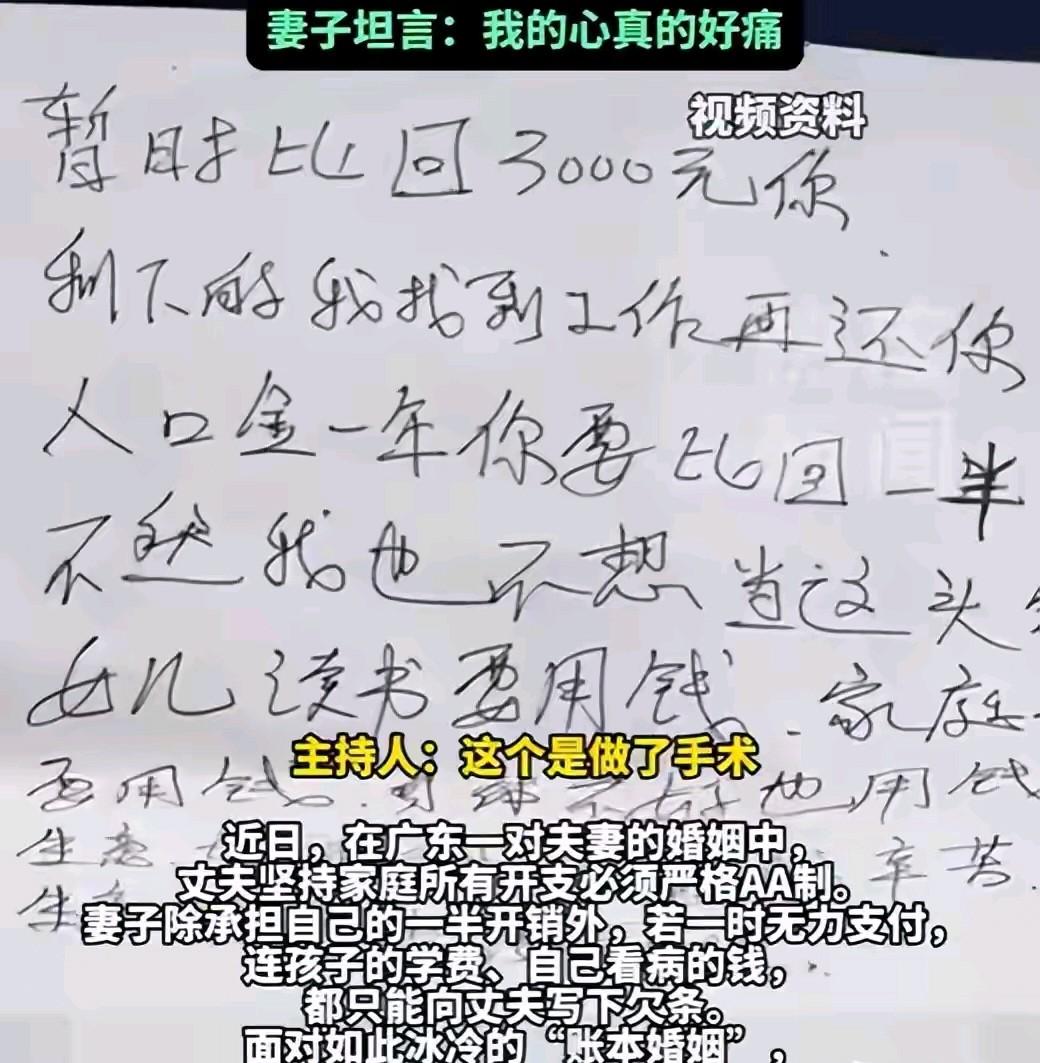 妻子坦言：我的心真的好痛
视频资料
暂时比回3000元你
剩下的我找到工作再还你
人口金一年你要比回一半
不然我也不想当这头
女儿读书要用钱.家庭
主持人：这个是做了手术
要用钱.身体不好也用钱
近日，在广东一对夫妻的婚姻中，
生意 辛苦
丈夫坚持家庭所有开支必须严格AA制。
妻子除承担自己的一半开销外，若一时无力支付，
连孩子的学费、自己看病的钱，
都只能向丈夫写下欠条。
面对如此冰冷的“账本婚姻”，